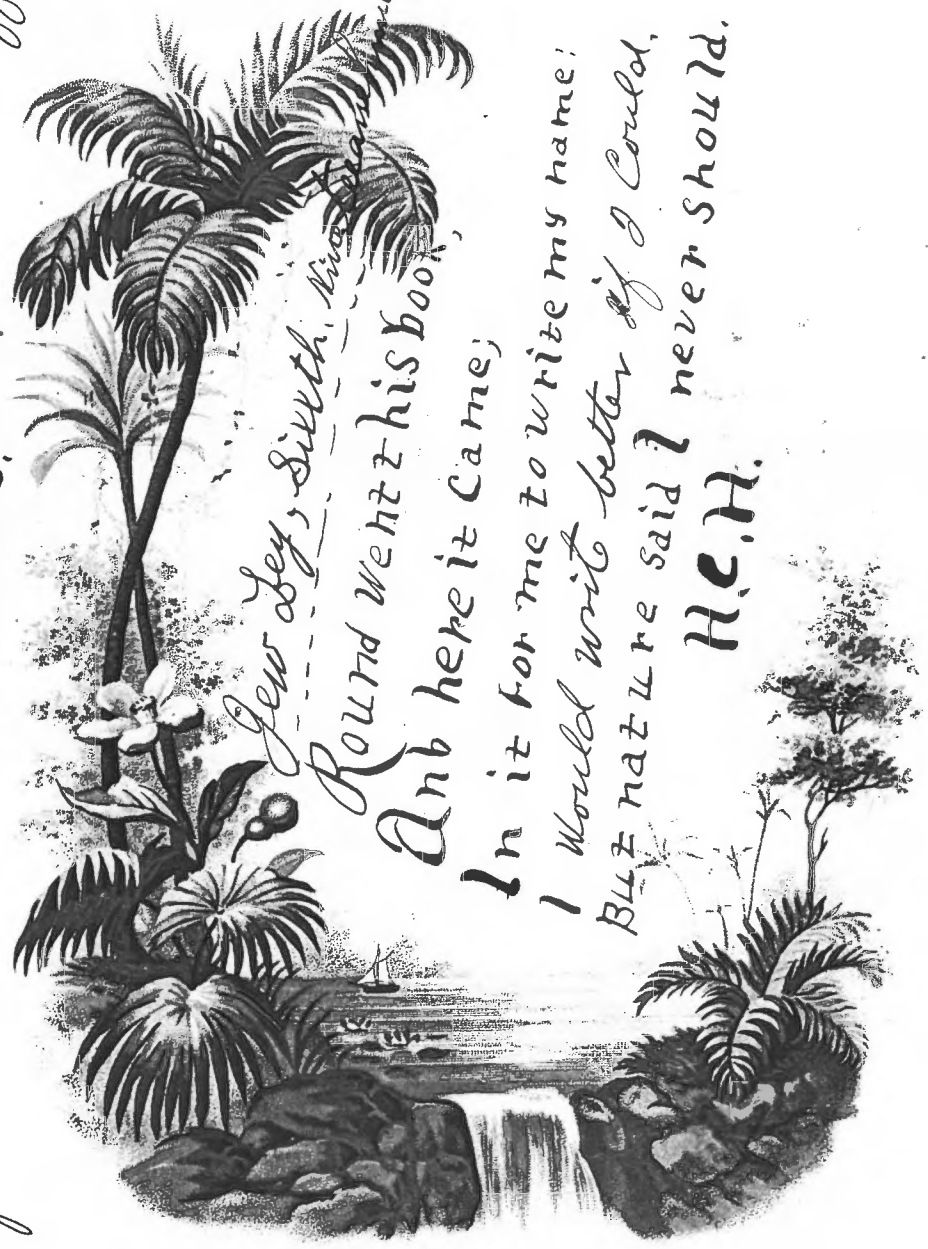 Gew Ley, Sixth,
Round went this book,
Anb here it Came;
In it for me to write my name:
I Would writ better if I Could,
But nature said I never should.
H.C.H.